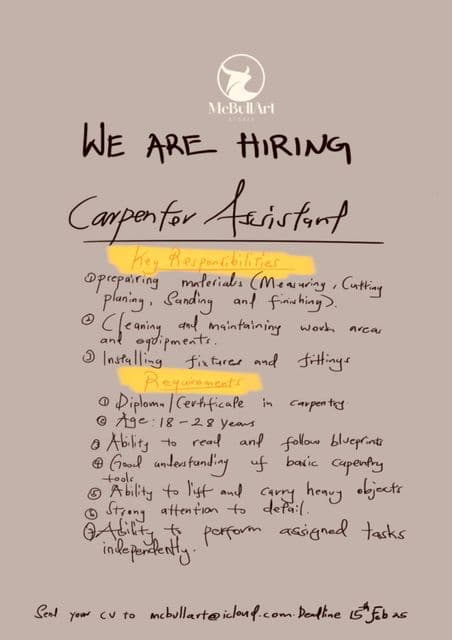 McBullArt
STUDIO
WE ARE HIRING
Carpenter Assistant
Key Responsibilities
① prepairing materials (Measuring, Cutting
planing, Sanding and finishing).
② Cleaning and maintaining work areas
and equipments.
③ Installing fixtures and fittings
Requirements
① Diploma/Certificate in carpentry
② Age: 18 - 28 years
③ Ability to read and follow blueprints
④ Good understanding of basic capentry
tools
⑤ Ability to lift and carry heavy objects
⑥ Strong attention to detail.
⑦ Ability to perform assigned tasks
independently.
Send your CV to mcbullart@icloud.com. Deadline 15th Feb 25